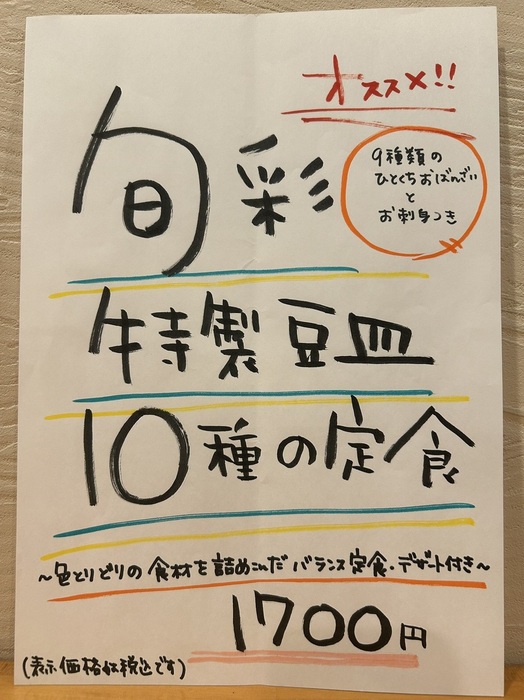 オススメ!!
旬彩
9種類の
ひとくちおばんざい
と
お刺身つき
特製豆皿
10種の定食
～色とりどりの食材を詰めこんだバランス定食・デザート付き～
1700円
(表示価格は税込です)